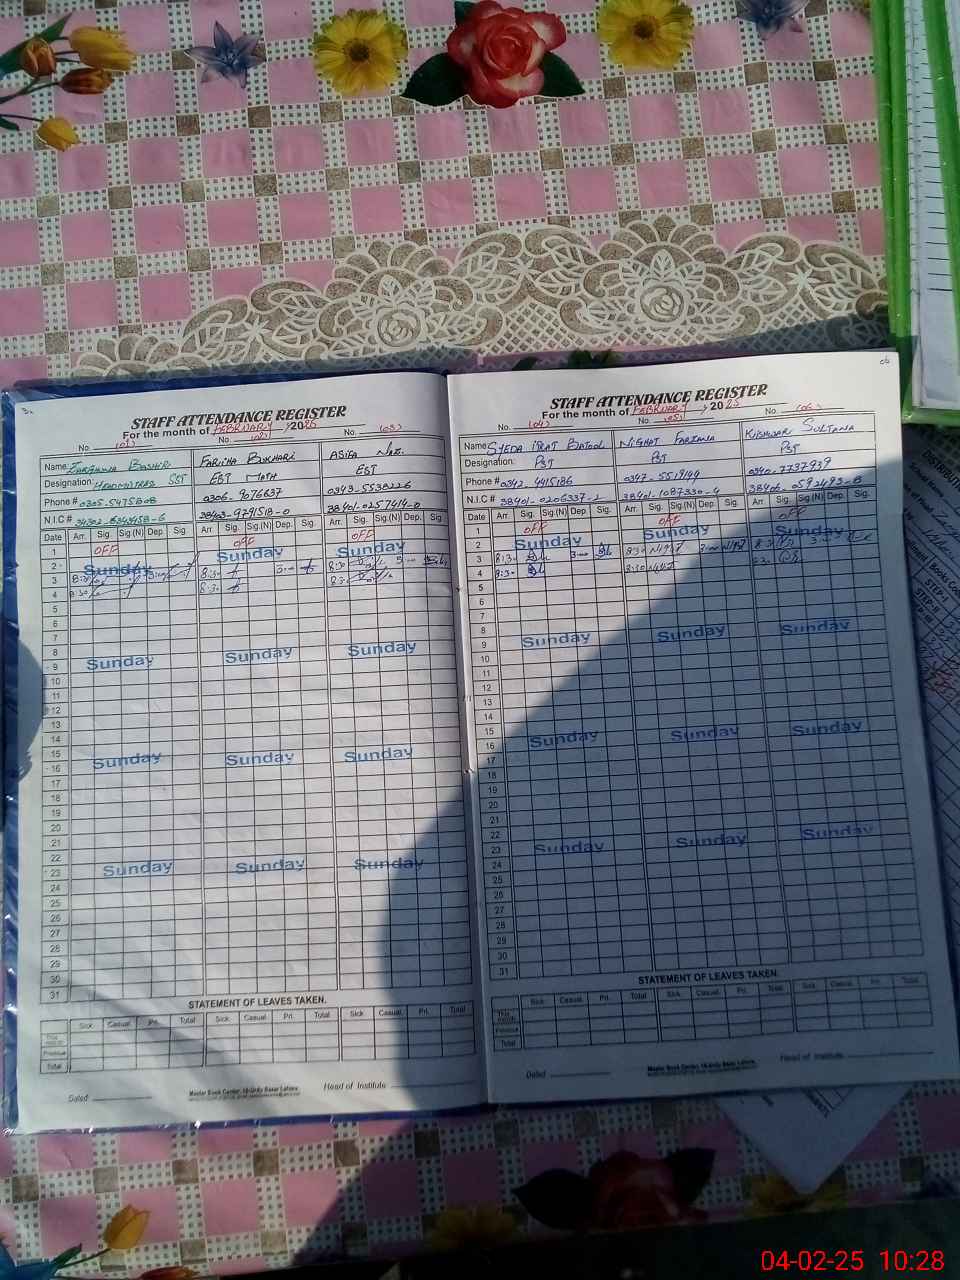 STAFF ATTENDANCE REGISTER
For the month of FEBRUARY 2025
No. (01) No. (02) No. (03)
Name: BASHIR FARIHA BUKHARI ASIFA
Designation: HEADMISTRESS SST EST MATH EST
Phone # 0305-5475808 0306-9076637 0343-5538226
N.I.C # 38403-9791518-0 38401-0257414-0
Date Arr. Sig. Sig.(N) Dep. Sig. Arr. Sig. Sig.(N) Dep. Sig. Arr. Sig. Sig.(N) Dep. Sig.
1 OFF OFF OFF
2 Sunday Sunday Sunday
3 8:30 8:30 8:30
4 8:30 8:30 8:30
5
6
7
8
9 Sunday Sunday Sunday
10
11
12
13
14
15
16 Sunday Sunday Sunday
17
18
19
20
21
22
23 Sunday Sunday Sunday
24
25
26
27
28
29
30
31
STATEMENT OF LEAVES TAKEN.
Sick. Casual. Pri. Total Sick. Casual. Pri. Total Sick. Casual. Pri. Total
This month
Previous
Total
Dated Master Book Center, 18-Urdu Bazar Lahore. Head of Institute
STAFF ATTENDANCE REGISTER
For the month of FEBRUARY 2025
No. (04) No. (05) No. (06)
Name: SYEDA BATOOL NIGHAT FARZANA KISHWAR SULTANA
Designation: PST PST PST
Phone # 0342-4415186 0347-5519149 0340-7737939
N.I.C # 38401-0206337-2 38401-1087330-4 38406-0592493-8
Date Arr. Sig. Sig.(N) Dep. Sig. Arr. Sig. Sig.(N) Dep. Sig. Arr. Sig. Sig.(N) Dep. Sig.
OFF OFF OFF
2 Sunday Sunday Sunday
3 8:30 8:30 8:30
4 8:30 8:30 8:30
5
6
7
8
9 Sunday Sunday Sunday
10
11
12
13
14
15
16 Sunday Sunday Sunday
17
18
19
20
21
22
23 Sunday Sunday Sunday
24
25
26
27
28
29
30
31
STATEMENT OF LEAVES TAKEN.
Sick. Casual. Pri. Total Sick. Casual. Pri. Total Sick. Casual. Pri. Total
This month
Previous
Total
Dated Master Book Center, 18-Urdu Bazar Lahore. Head of Institute
04-02-25 10:28